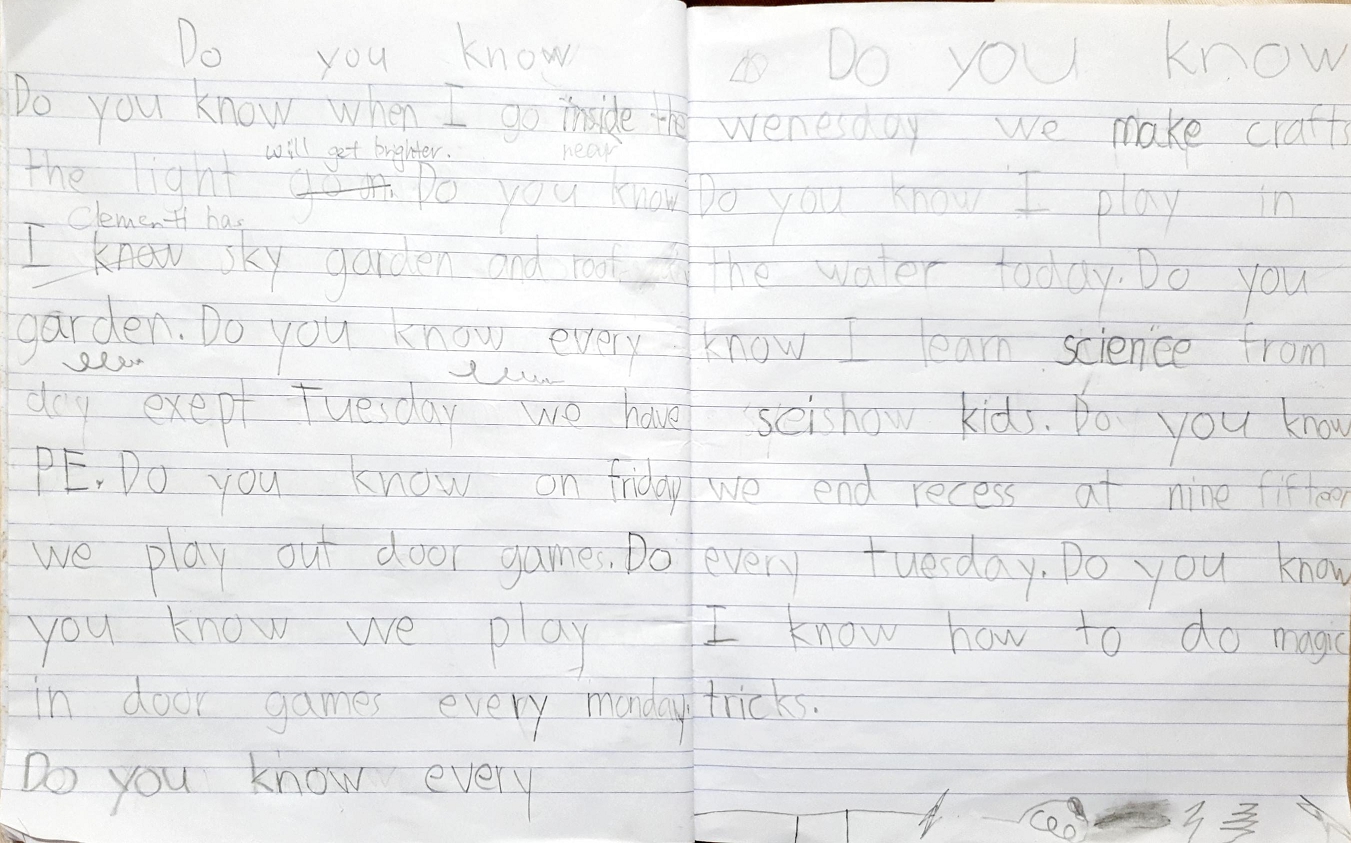 Do you know
Do you know when I go inside the
will get brighter. near
the light go on. Do you know
Clementi has
I know sky garden and roof
garden. Do you know every
day exept Tuesday we have
PE. Do you know on friday
we play out door games. Do
you know we play
in door games every monday.
Do you know every
Do you know
wenesday we make crafts
Do you know I play in
the water today. Do you
know I learn science from
seishow kids. Do you know
we end recess at nine fifteen
every tuesday. Do you know
I know how to do magic
tricks.